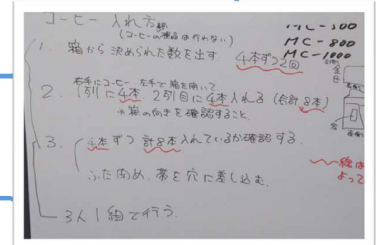 コーヒー 入れ方編
(コーヒーの検品は行わない)
MC-500
MC-800
MC-1000
1. 箱から 決められた数を出す 4本ずつ2回
右手にコーヒー、左手で箱を開いて
2. 1列に4本 2列目に4本入れる (合計8本)
※箱の向きを確認すること。
3. 4本ずつ 計8本入れているか確認する。
ふた閉め、帯を穴に差し込む。
絵は
よって
3人1組で行う。